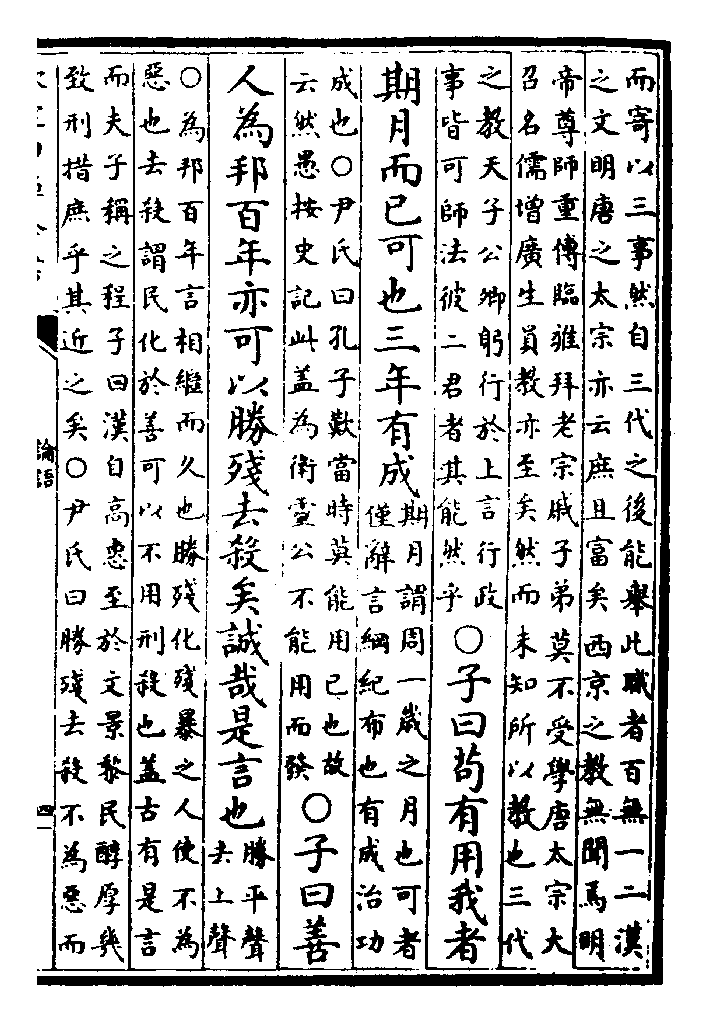 而寄以三事然自三代之後能舉此職者百無一二漢
之文明唐之太宗亦云庶且富矣西京之教無聞焉明
帝尊師重傅臨雍拜老宗戚子弟莫不受學唐太宗大
召名儒增廣生員教亦至矣然而未知所以教也三代
之教天子公卿躬行於上言行政
事皆可師法彼二君者其能然乎
○子曰茍有用我者
期月而已可也三年有成
期月謂周一歲之月也可者
僅辭言綱紀布也有成治功
成也○尹氏曰孔子歎當時莫能用己也故
云然愚按史記此蓋為衛靈公不能用而發
○子曰善
人為邦百年亦可以勝殘去殺矣誠哉是言也
勝平聲
去上聲
○為邦百年言相繼而久也勝殘化殘暴之人使不為
惡也去殺謂民化於善可以不用刑殺也蓋古有是言
而夫子稱之程子曰漢自高惠至於文景黎民醇厚幾
致刑措庶乎其近之矣○尹氏曰勝殘去殺不為惡而
論語